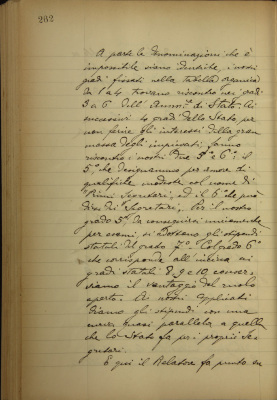 262
A parte le denominazioni che è
impossibile siano identiche, i nostri
gradi fissati nella tabella organica
da 1 a 4 trovano riscontro nei gradi
3 a 6 dell'Ammne di Stato. Ai
successivi 4 gradi dello Stato per
non ferire gli interessi della gran
massa degli impiegati, fanno
riscontro i nostri due 5º e 6º: il
5º, che designammo per amore di
qualifiche modeste col nome di
"Primi Segretari", ed il 6º che
dei Segretari. Per il nostro
grado 5º da conseguirsi unicamente
per esami, si adottano gli stipendi
statali del grado 7º. Col grado 6º
che corrisponde all'incirca ai
gradi statali 8, 9 e 10, conser-
viamo il vantaggio del ruolo
aperto. Ai nostri applicati
diamo gli stipendi con una
quasi parallela a quella
che lo Stato fa pei proprii Se-
gretari.
E qui il Relatore fa punto en